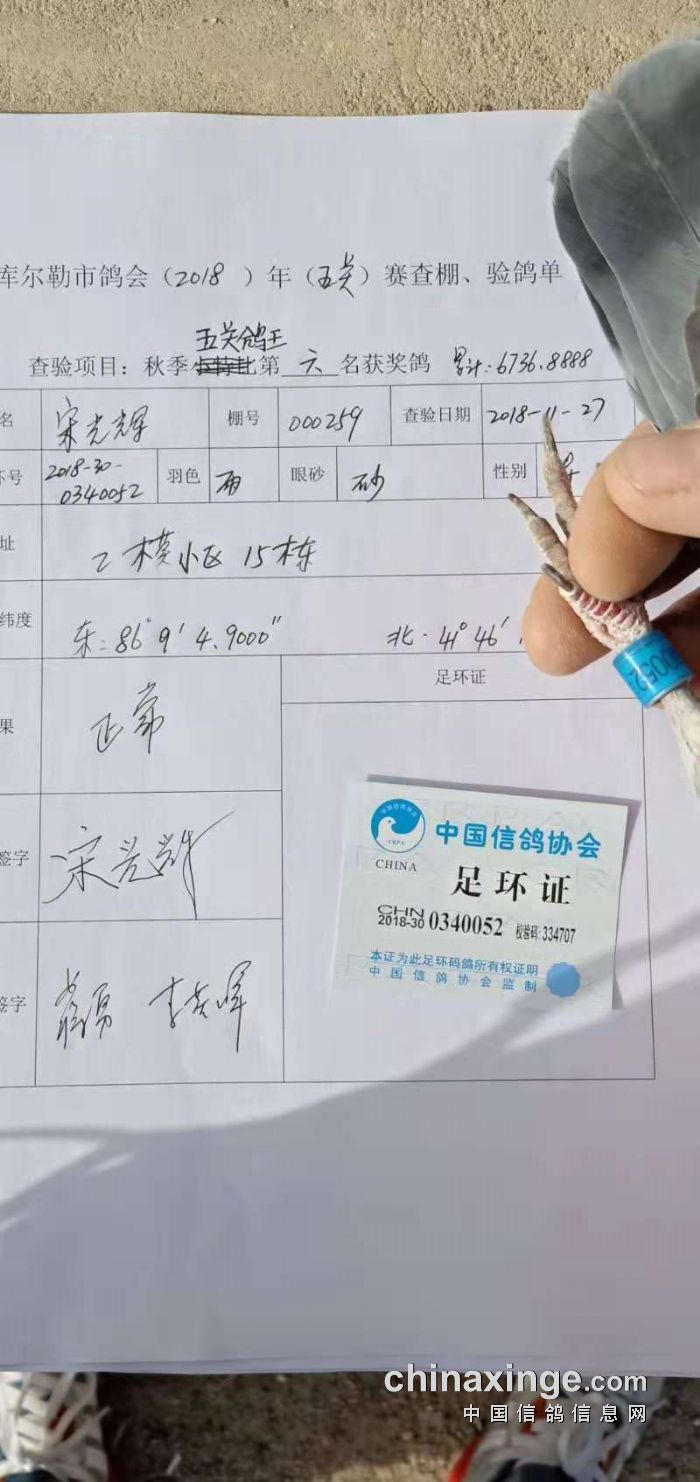 库尔勒市鸽会（2018）年（五关）赛查棚、验鸽单
五关鸽王
查验项目：秋季 第六名获奖鸽 累计：6736.8888
名 宋光辉 棚号 000259 查验日期 2018-11-27
环号 2018-30-0340052 羽色 雨 眼砂 砂 性别
址 乙模小区 15栋
纬度 东：86°9′4.9000″ 北·41°46′
果 正常 足环证
签字 宋光辉
签字
0052
中国信鸽协会
CHINA
足环证
CHN
2018-30 0340052 校验码:334707
本证为此足环码鸽所有权证明
中国信鸽协会监制
chinaxinge.com
中国信鸽信息网